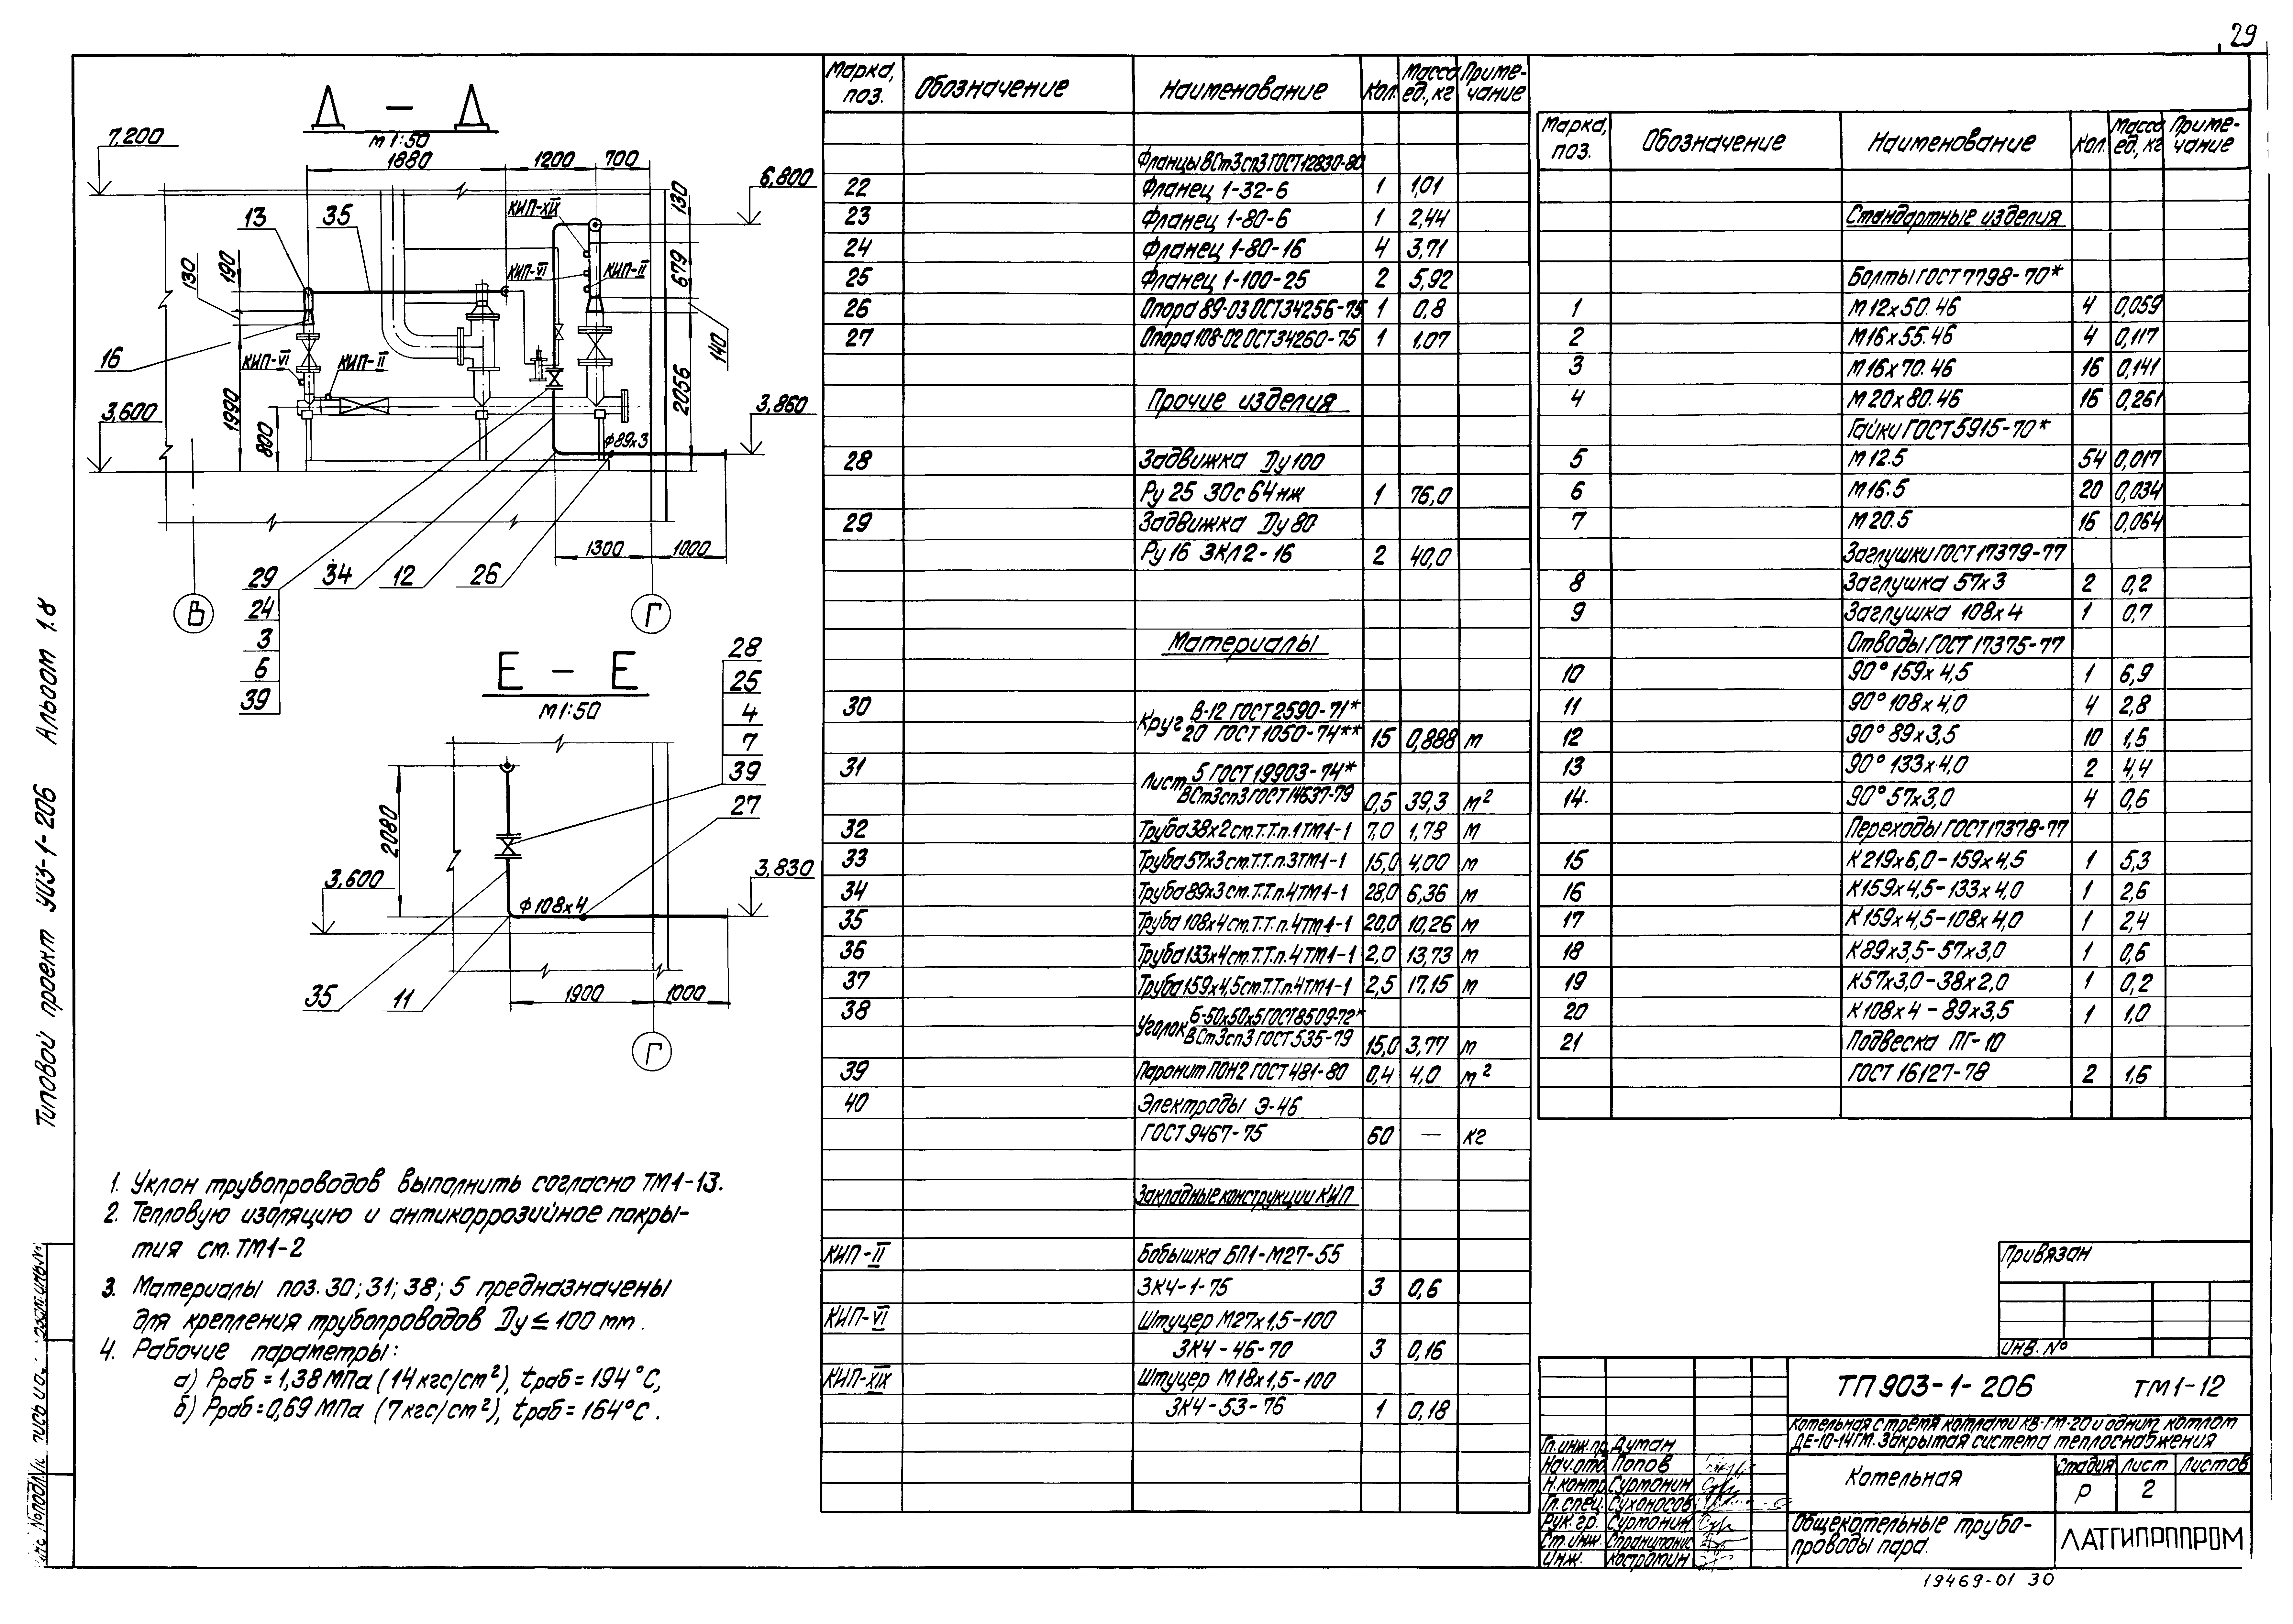 29
Д - Д
М 1:50
7,200
1880
1200
700
6,800
130
КИП-XIX
13
35
190
130
КИП-VI
КИП-II
679
16
КИП-VI
КИП-II
140
3,600
1990
800
2056
3,860
ф89х3
1300
1000
29
34
12
26
24
3
6
39
В
Г
Е - Е
М1:50
28
25
4
7
39
27
2080
3,600
3,830
ф108х4
35
11
1900
1000
Г
Типовой проект 903-1-206 Альбом 1.8
1. Уклон трубопроводов выполнить согласно ТМ1-13.
2. Тепловую изоляцию и антикоррозийное покры-
тия см. ТМ1-2
3. Материалы поз. 30; 31; 38; 5 предназначены
для крепления трубопроводов Ду ≤ 100 мм.
4. Рабочие параметры:
а) Рраб = 1,38 МПа (14 кгс/см²), tраб = 194°С,
б) Рраб = 0,69 МПа (7 кгс/см²), tраб = 164°С.
Марка, поз. Обозначение Наименование Кол. Масса ед., кг Приме-чание
Фланцы ВСт3сп3 ГОСТ 12830-80
22 Фланец 1-32-6 1 1,01
23 Фланец 1-80-6 1 2,44
24 Фланец 1-80-16 4 3,71
25 Фланец 1-100-25 2 5,92
26 Опора 89-03 ОСТ34256-75 1 0,8
27 Опора 108-02 ОСТ34260-75 1 1,07
Прочие изделия
28 Задвижка Ду 100
Ру 25 30с64нж 1 76,0
29 Задвижка Ду 80
Ру 16 ЗКЛ2-16 2 40,0
Материалы
30 Круг В-12 ГОСТ 2590-71*
20 ГОСТ 1050-74** 15 0,888 м
31 Лист 5 ГОСТ 19903-74*
ВСт3сп3 ГОСТ 14637-79 0,5 39,3 м²
32 Труба 38х2 см. Т.Т. п.1 ТМ1-1 7,0 1,78 м
33 Труба 57х3 см. Т.Т. п.3 ТМ1-1 15,0 4,00 м
34 Труба 89х3 см. Т.Т. п.4 ТМ1-1 28,0 6,36 м
35 Труба 108х4 см. Т.Т. п.4 ТМ1-1 20,0 10,26 м
36 Труба 133х4 см. Т.Т. п.4 ТМ1-1 2,0 13,73 м
37 Труба 159х4,5 см. Т.Т. п.4 ТМ1-1 2,5 17,15 м
38 Уголок Б-50х50х5 ГОСТ 8509-72*
ВСт3сп3 ГОСТ 535-79 15,0 3,77 м
39 Паронит ПОН2 ГОСТ 481-80 0,4 4,0 м²
40 Электроды Э-46
ГОСТ 9467-75 60 — кг
Закладные конструкции КИП
КИП-II Бобышка БП1-М27-55
ЗК4-1-75 3 0,6
КИП-VI Штуцер М27х1,5-100
ЗК4-46-70 3 0,16
КИП-XIX Штуцер М18х1,5-100
ЗК4-53-76 1 0,18
Марка, поз. Обозначение Наименование Кол. Масса ед., кг Приме-чание
Стандартные изделия
Болты ГОСТ 7798-70*
1 М12х50.46 4 0,059
2 М16х55.46 4 0,117
3 М16х70.46 16 0,141
4 М20х80.46 16 0,261
Гайки ГОСТ 5915-70*
5 М12.5 54 0,017
6 М16.5 20 0,034
7 М20.5 16 0,064
Заглушки ГОСТ 17379-77
8 Заглушка 57х3 2 0,2
9 Заглушка 108х4 1 0,7
Отводы ГОСТ 17375-77
10 90° 159х4,5 1 6,9
11 90° 108х4,0 4 2,8
12 90° 89х3,5 10 1,5
13 90° 133х4,0 2 4,4
14 90° 57х3,0 4 0,6
Переходы ГОСТ 17378-77
15 К219х6,0-159х4,5 1 5,3
16 К159х4,5-133х4,0 1 2,6
17 К159х4,5-108х4,0 1 2,4
18 К89х3,5-57х3,0 1 0,6
19 К57х3,0-38х2,0 1 0,2
20 К108х4-89х3,5 1 1,0
21 Подвеска ПГ-10
ГОСТ 16127-78 2 1,6
Привязан
ИНВ. №
ТП 903-1-206 ТМ1-12
Котельная с тремя котлами КВ-ГМ-20 и одним котлом
ДЕ-10-14ГМ. Закрытая система теплоснабжения
Гл. инж. пр. Думан
Нач. отд. Попов
Н. контр. Сурмонин
Гл. спец. Сухоносов
Рук. гр. Сурмонин
Ст. инж.
Инж. Костромин
Котельная
Стадия Лист Листов
Р 2
Общекотельные трубо-
проводы пара.
ЛАТГИПРОПРОМ
19469-01 30